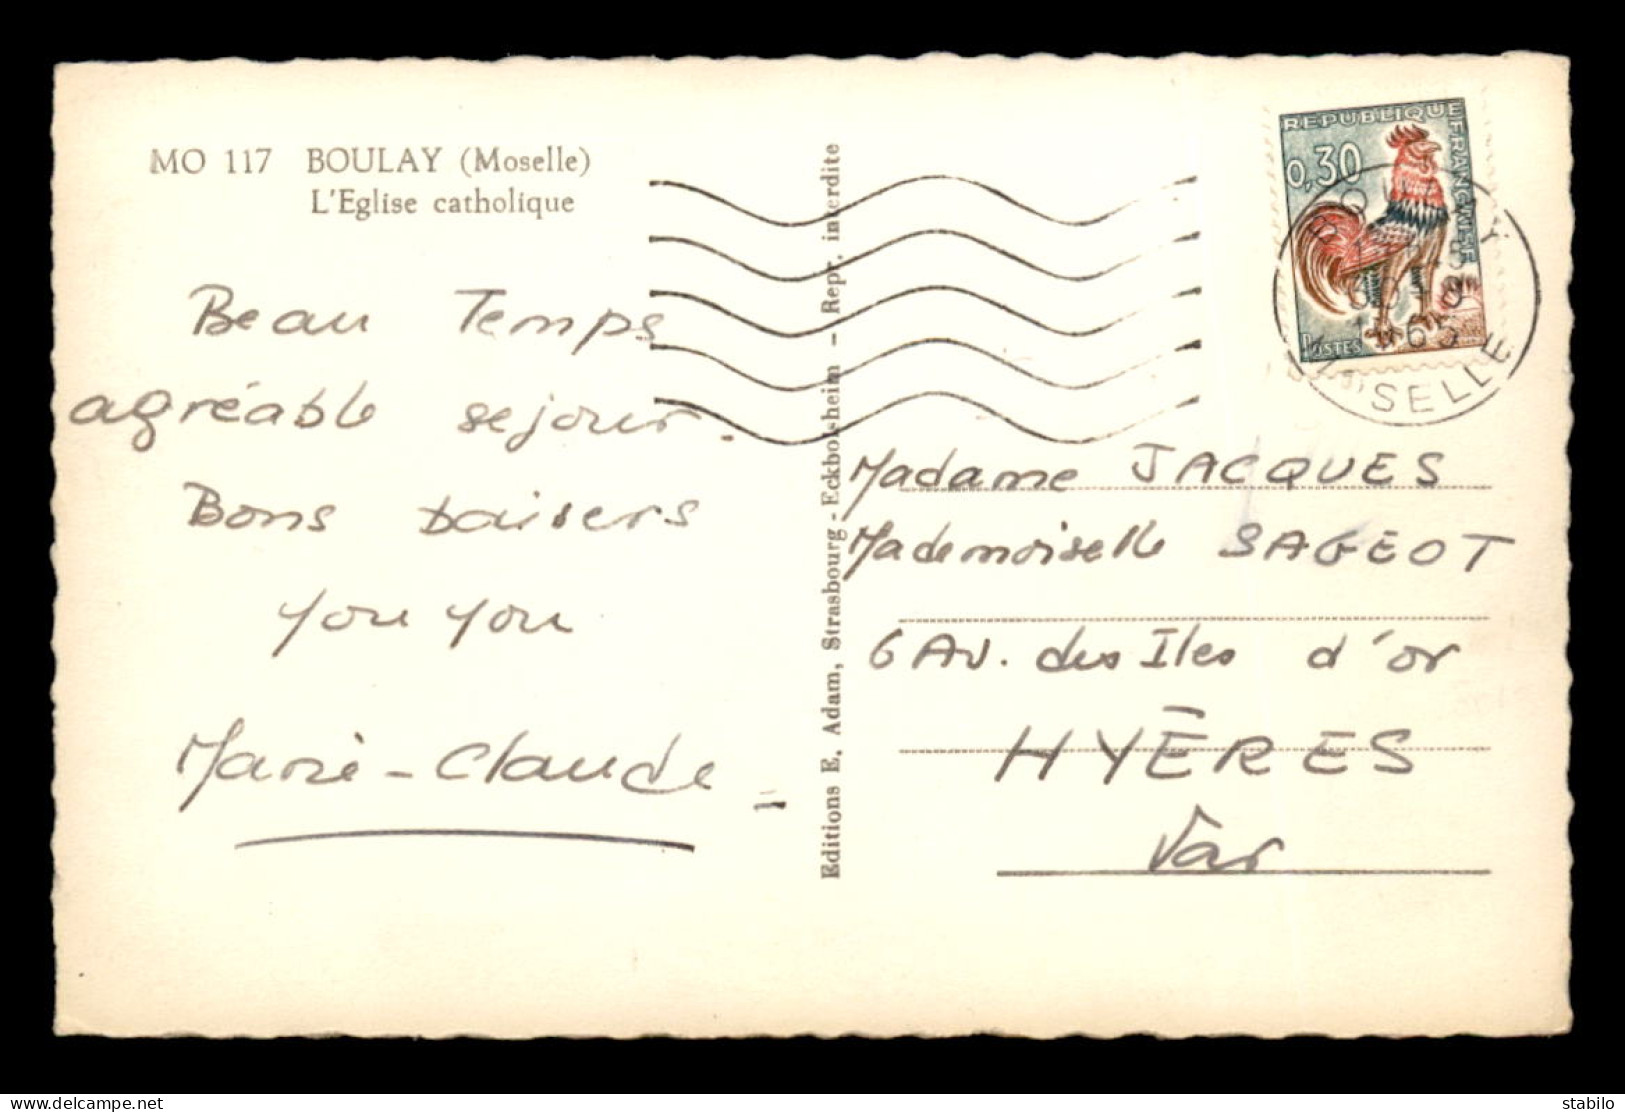 MO 117 BOULAY (Moselle)
L'Eglise catholique
Beau Temps
agréable sejour.
Bons baisers
you you
Marie-Claude
Editions E. Adam, Strasbourg - Eckbolsheim - Repr. interdite
REPUBLIQUE FRANÇAISE
0,30
POSTES
BOULAY
1965
MOSELLE
Madame JACQUES
Mademoiselle SAGEOT
6 Av. des Iles d'or
HYÈRES
Var
delcampe.net
stabilo